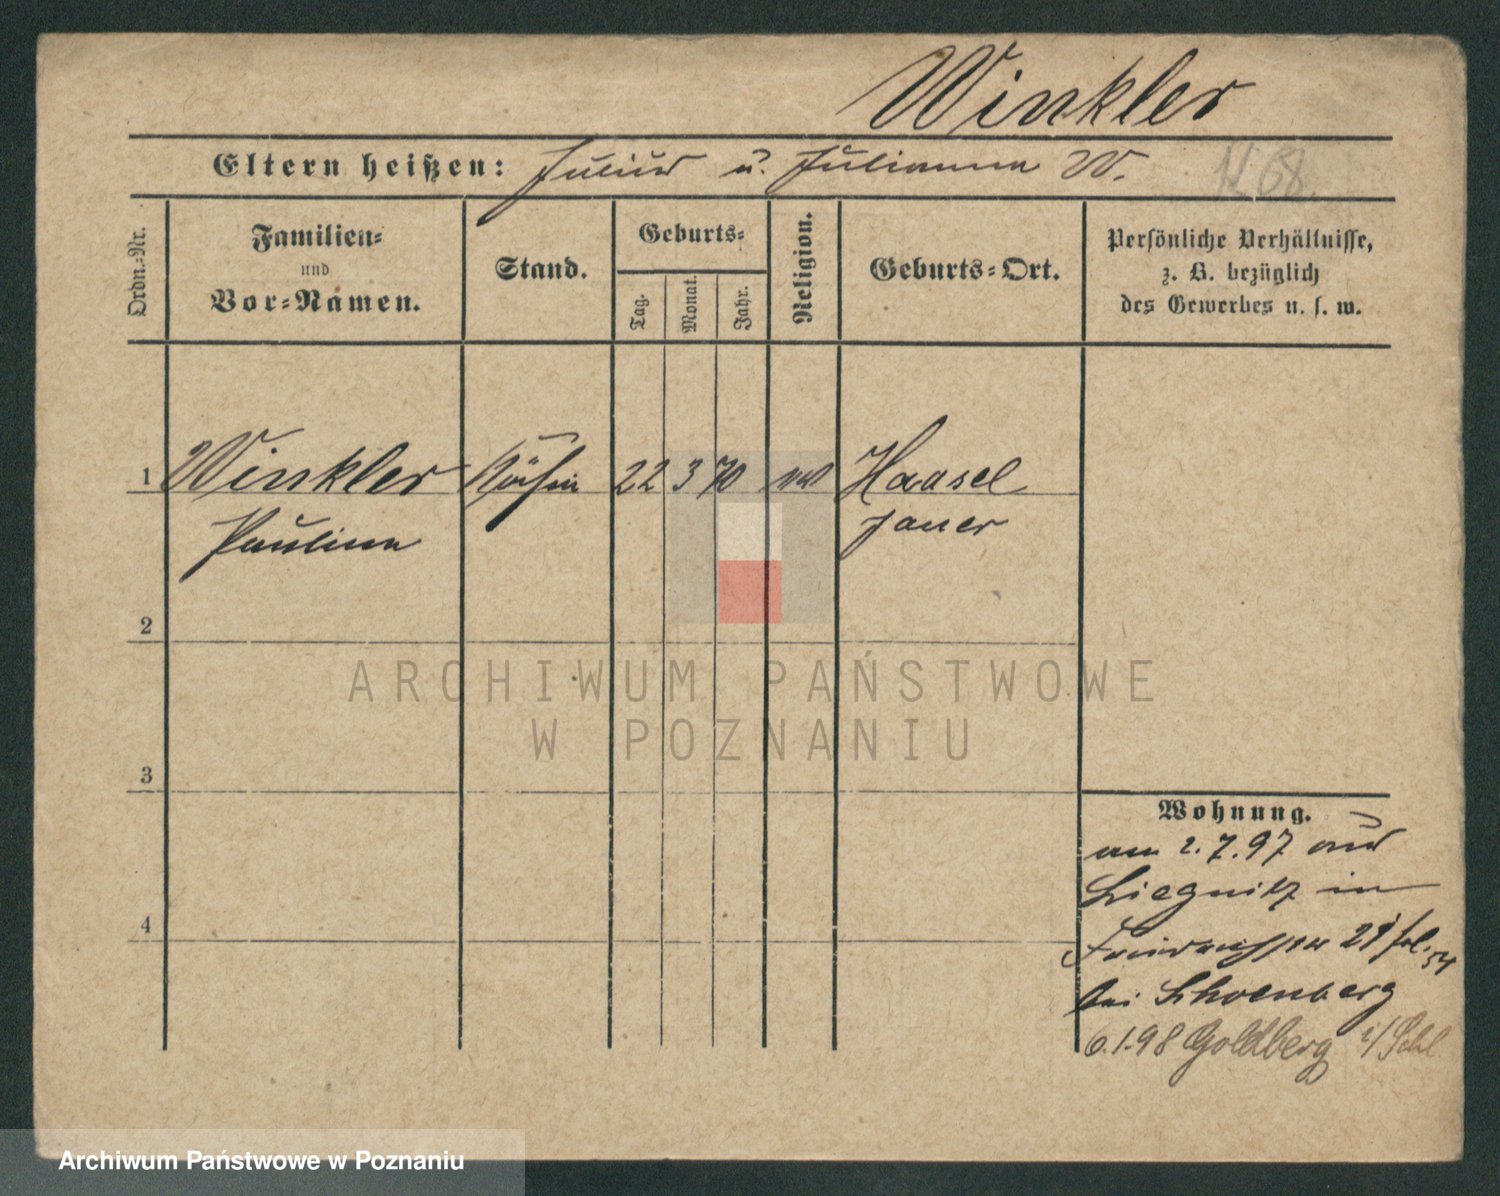 Winkler
Eltern heißen: Julius u. Julianna W.
Ordn.-Nr.
Familien-
und
Vor-Namen.
Stand.
Geburts-
Tag.
Monat.
Jahr.
Religion.
Geburts-Ort.
Persönliche Verhältnisse,
z. B. bezüglich
des Gewerbes u. s. w.
1 Winkler Köchin 22 3 70 Haasel
Paulina Jauer
2
3
4
Wohnung.
am 2.7.97 aus
Liegnitz in
21
bei Schoenberg
6.1.98 Goldberg i/Schl
ARCHIWUM PAŃSTWOWE
W POZNANIU
Archiwum Państwowe w Poznaniu